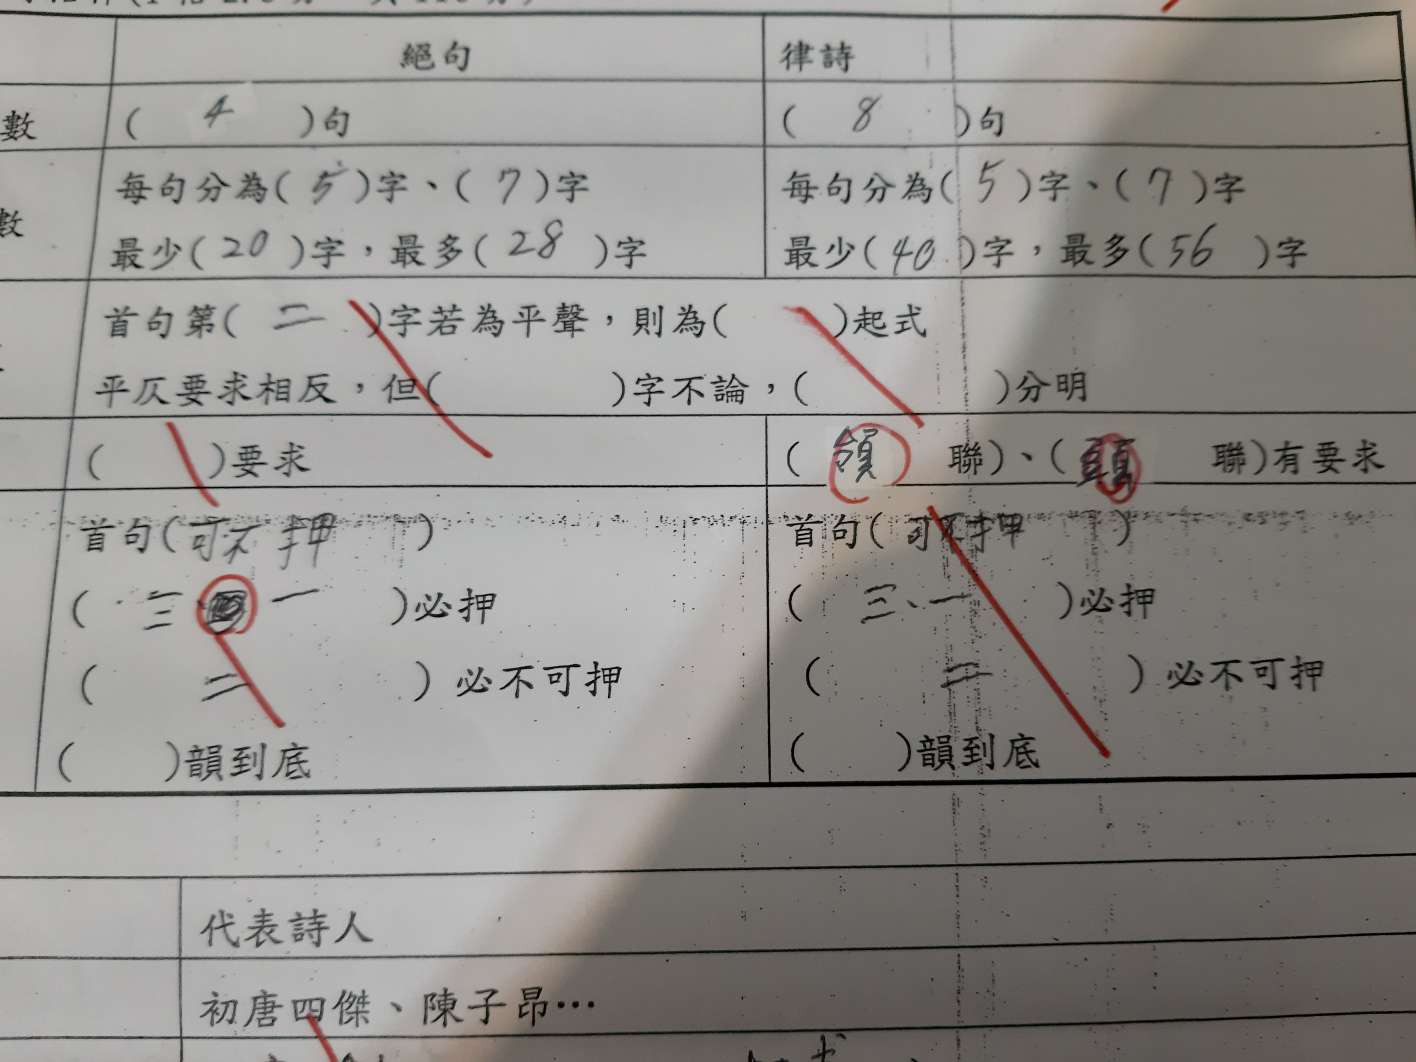 絕句 律詩
數 ( 4 )句 ( 8 )句
每句分為( 5 )字、( 7 )字 每句分為( 5 )字、( 7 )字
數 最少( 20 )字，最多( 28 )字 最少( 40 )字，最多( 56 )字
首句第( 二 )字若為平聲，則為( )起式
平仄要求相反，但( )字不論，( )分明
( )要求 ( 領 聯)、( 頭 聯)有要求
首句( 可不押 ) 首句( 可不押 )
( 三、一 )必押 ( 三、一 )必押
( 二 ) 必不可押 ( 二 ) 必不可押
( )韻到底 ( )韻到底
代表詩人
初唐四傑、陳子昂…